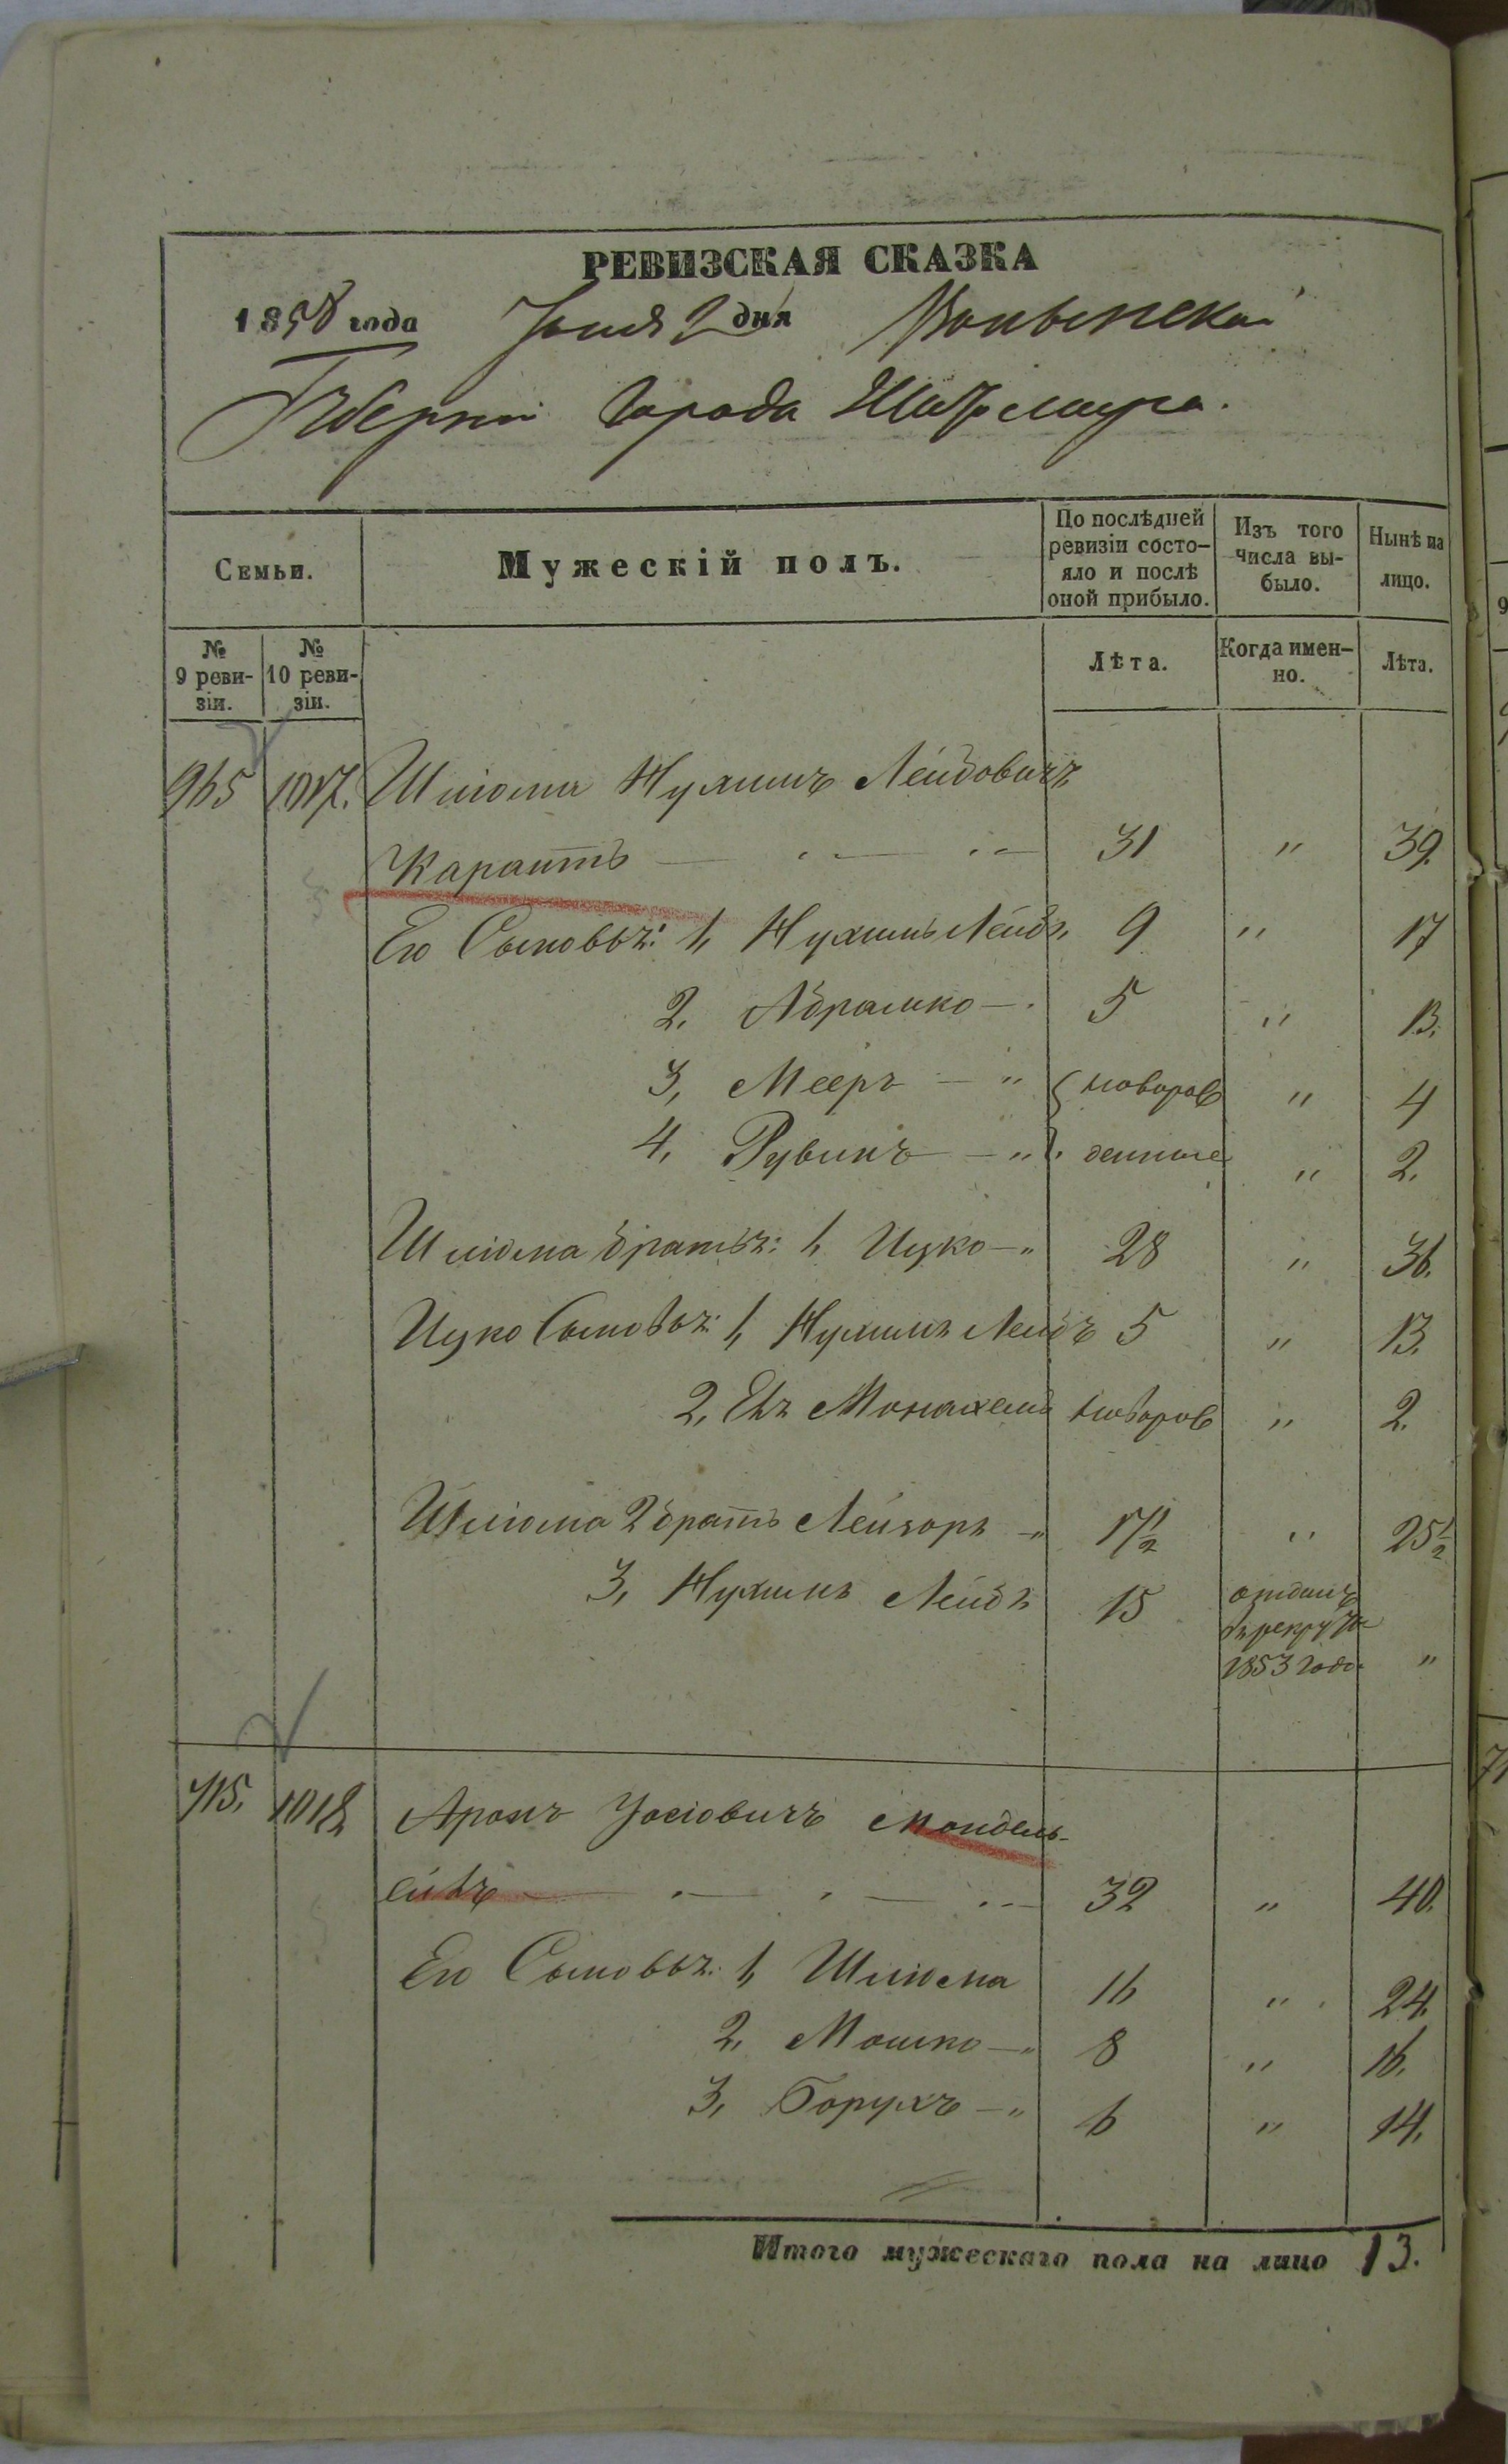 РЕВИЗСКАЯ СКАЗКА
1858 года Іюня 2 дня Волынской
Губерніи Города Житомира.
Семьи.
Мужескій полъ.
По послѣдней ревизіи состо-
яло и послѣ
оной прибыло.
Изъ того
числа вы-
было.
Нынѣ на
лицо.
№
9 реви-
зіи.
№
10 реви-
зіи.
Лѣта.
Когда имен-
но.
Лѣта.
965 1017. Шліома Нухимъ Лейбовичъ
Карантъ 31 " 39.
Его Сыновья: 1, Нухимъ Лейбъ 9 " 17
2. Абрамко 5 " 13.
3, Мееръ " новорож " 4
4, Рувинъ " денные " 2.
Шліома братья: 1, Ицко " 28 " 36.
Ицко Сыновья: 1, Нухимъ Лейбъ 5 " 13.
2, Монахемъ новорож " 2.
Шліома 2 братъ Лейзоръ " 17½ " 25½
3, Нухимъ Лейбъ 15 отданъ
въ рекруты
1853 года "
715. 1018 Аронъ Іосіовичъ Мондель-
32 " 40.
Его Сыновья: 1, Шліома 16 " 24.
2, Мошко " 8 " 16.
3, Борухъ " 6 " 14.
Итого мужескаго пола на лицо 13.